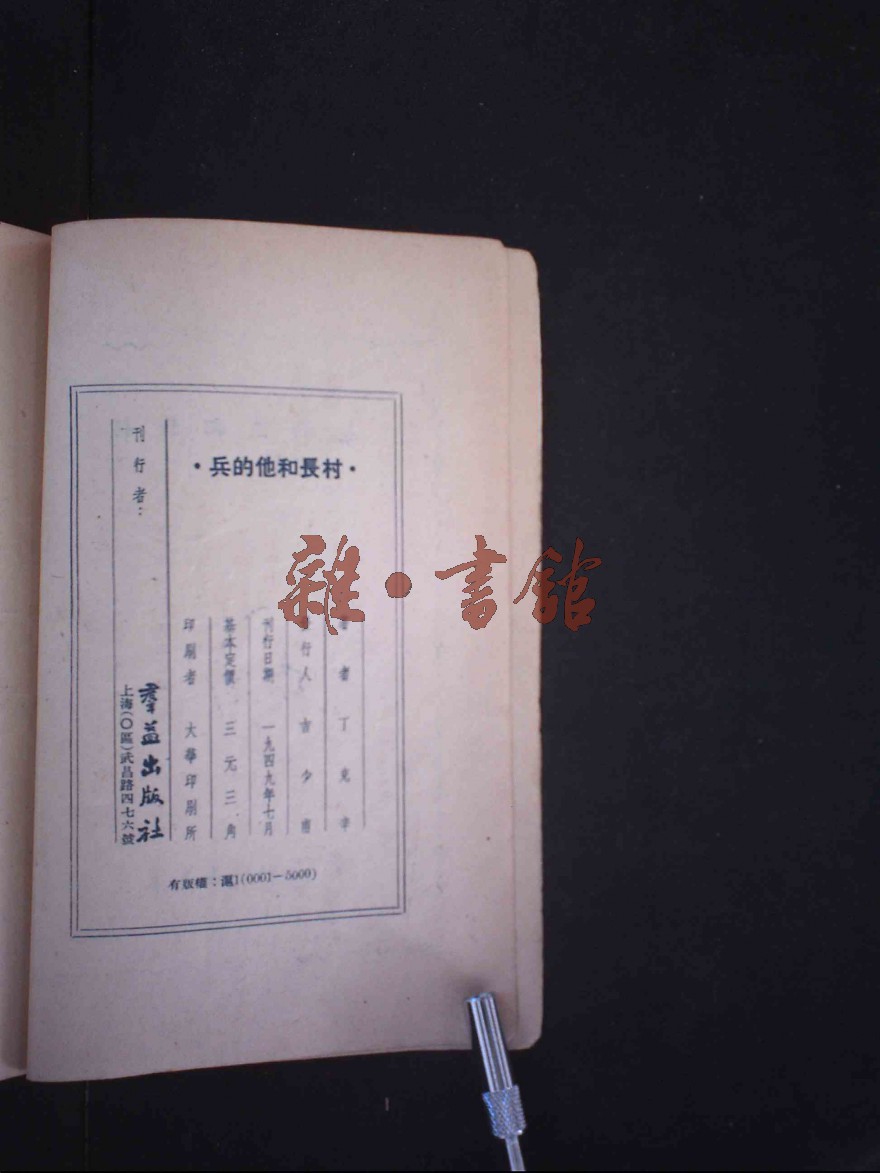 ·村長和他的兵·
著者 丁克辛
發行人 吉少甫
刊行日期 一九四九年七月
基本定價 三元三角
印刷者 大華印刷所
刊行者：
羣益出版社
上海(〇區)武昌路四七六號
有版權：滬1(0001—5000)
雜·書館